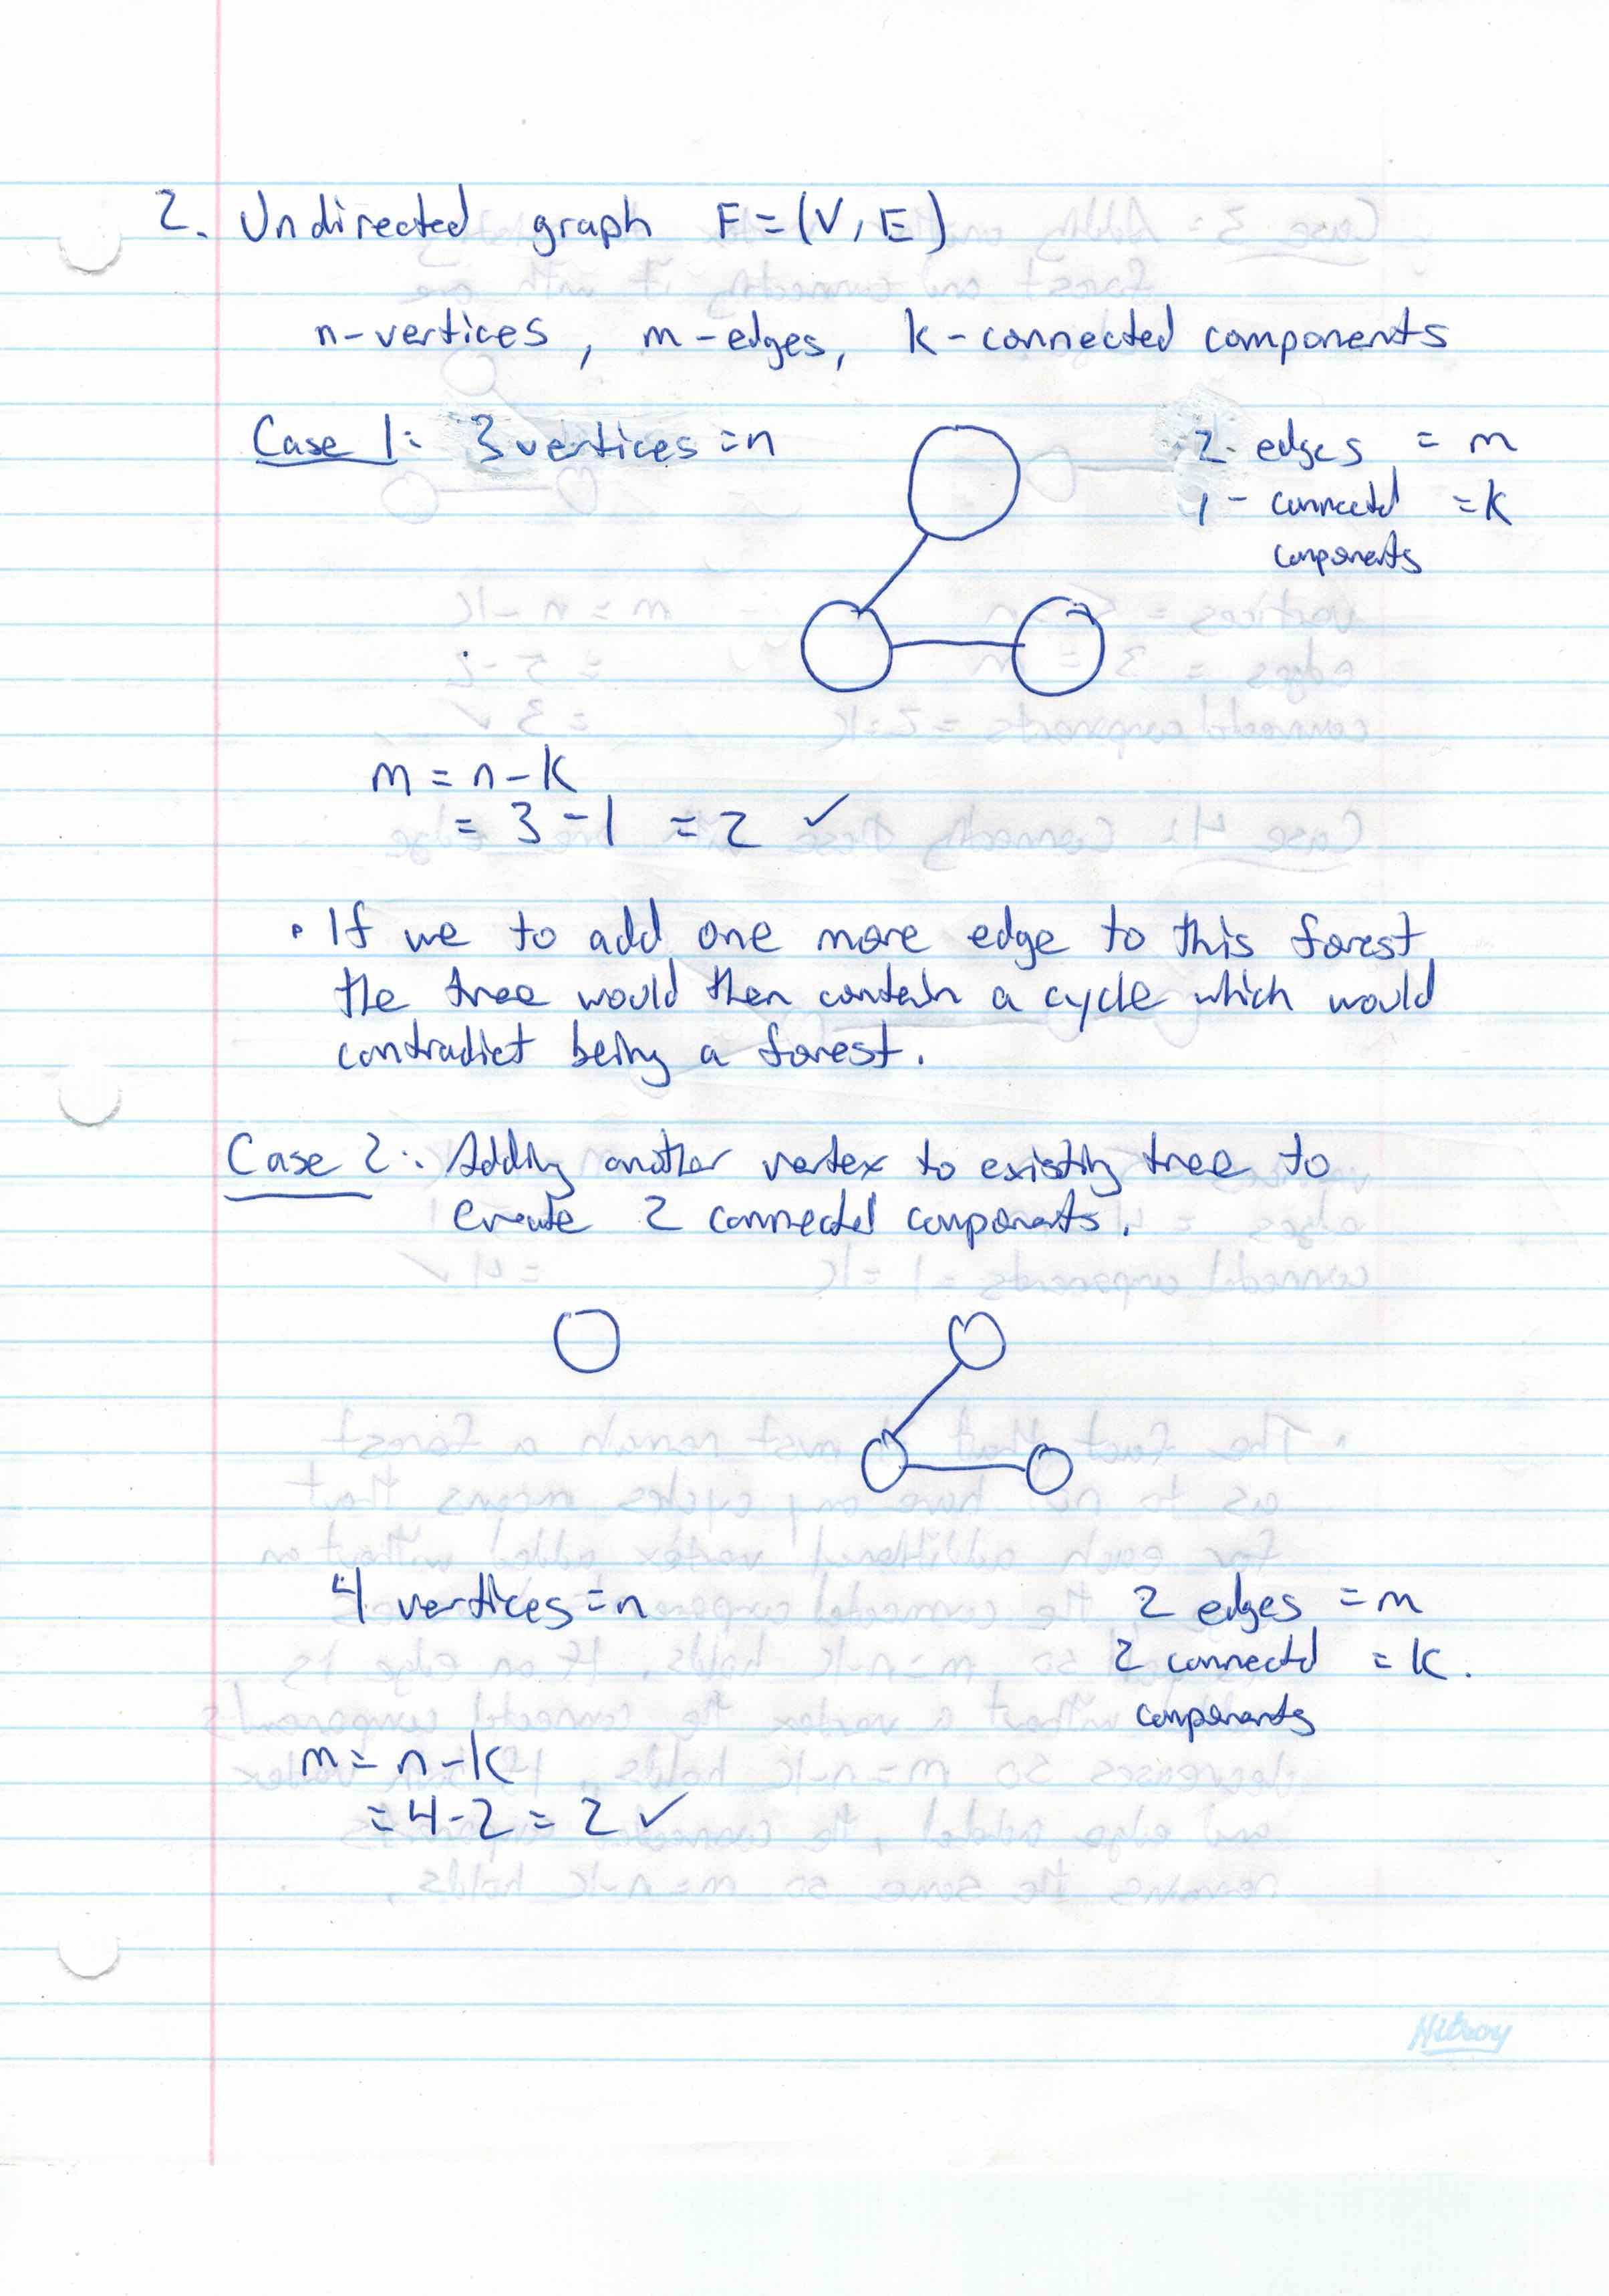 2. Undirected graph F=(V,E)
n-vertices, m-edges, k-connected components
Case 1: 3 vertices = n
2- edges = m
1- connected = k
components
m = n-k
= 3-1 = 2 ✓
• If we to add one more edge to this forest,
the tree would then contain a cycle which would
contradict being a forest.
Case 2: Adding another vertex to existing tree to
create 2 connected components.
4 vertices = n
2 edges = m
2 connectd = k.
components
m = n-k
= 4-2 = 2 ✓
Hilroy